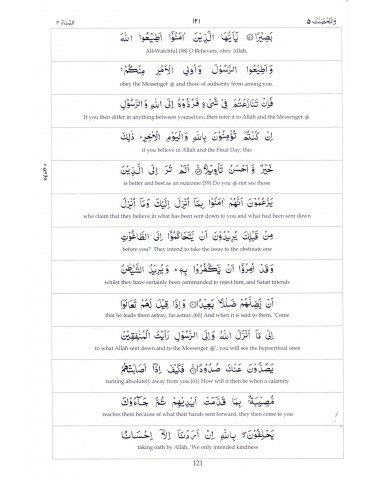 وَالْمُحْصَنٰتُ ٥
١٢١
اَلنِّسَآء ٤
بَصِيْرًا يٰٓاَيُّهَا الَّذِيْنَ اٰمَنُوْٓا اَطِيْعُوا اللّٰهَ
All-Watchful.[58] O Believers, obey Allāh,
وَاَطِيْعُوا الرَّسُوْلَ وَاُولِى الْاَمْرِ مِنْكُمْ ۚ
obey the Messenger ﷺ and those of authority from among you.
فَاِنْ تَنَازَعْتُمْ فِيْ شَيْءٍ فَرُدُّوْهُ اِلَى اللّٰهِ وَالرَّسُوْلِ
If you then differ in anything between yourselves, then refer it to Allāh and the Messenger ﷺ
اِنْ كُنْتُمْ تُؤْمِنُوْنَ بِاللّٰهِ وَالْيَوْمِ الْاٰخِرِ ۚ ذٰلِكَ
if you believe in Allāh and the Final Day; this
خَيْرٌ وَّاَحْسَنُ تَاْوِيْلًا اَلَمْ تَرَ اِلَى الَّذِيْنَ
is better and best as an outcome.[59] Do you ﷺ not see those
يَزْعُمُوْنَ اَنَّهُمْ اٰمَنُوْا بِمَآ اُنْزِلَ اِلَيْكَ وَمَآ اُنْزِلَ
who claim that they believe in what has been sent down to you and what had been sent down
مِنْ قَبْلِكَ يُرِيْدُوْنَ اَنْ يَّتَحَاكَمُوْٓا اِلَى الطَّاغُوْتِ
before you? They intend to take the issue to the obstinate one
وَقَدْ اُمِرُوْٓا اَنْ يَّكْفُرُوْا بِهٖ ۚ وَيُرِيْدُ الشَّيْطٰنُ
whilst they have certainly been commanded to reject him, and Satan intends
اَنْ يُّضِلَّهُمْ ضَلٰلًا بَعِيْدًا وَاِذَا قِيْلَ لَهُمْ تَعَالَوْا
that he leads them astray, far astray.[60] And when it is said to them, 'Come
اِلٰى مَآ اَنْزَلَ اللّٰهُ وَاِلَى الرَّسُوْلِ رَاَيْتَ الْمُنٰفِقِيْنَ
to what Allāh sent down and to the Messenger ﷺ', you will see the hypocritical ones
يَصُدُّوْنَ عَنْكَ صُدُوْدًا فَكَيْفَ اِذَآ اَصَابَتْهُمْ
turning absolutely away from you.[61] How will it then be when a calamity
مُّصِيْبَةٌۢ بِمَا قَدَّمَتْ اَيْدِيْهِمْ ثُمَّ جَآءُوْكَ
reaches them because of what their hands sent forward, they then come to you
يَحْلِفُوْنَ ۖ بِاللّٰهِ اِنْ اَرَدْنَآ اِلَّآ اِحْسَانًا
taking oath by Allāh, 'We only intended kindness
121